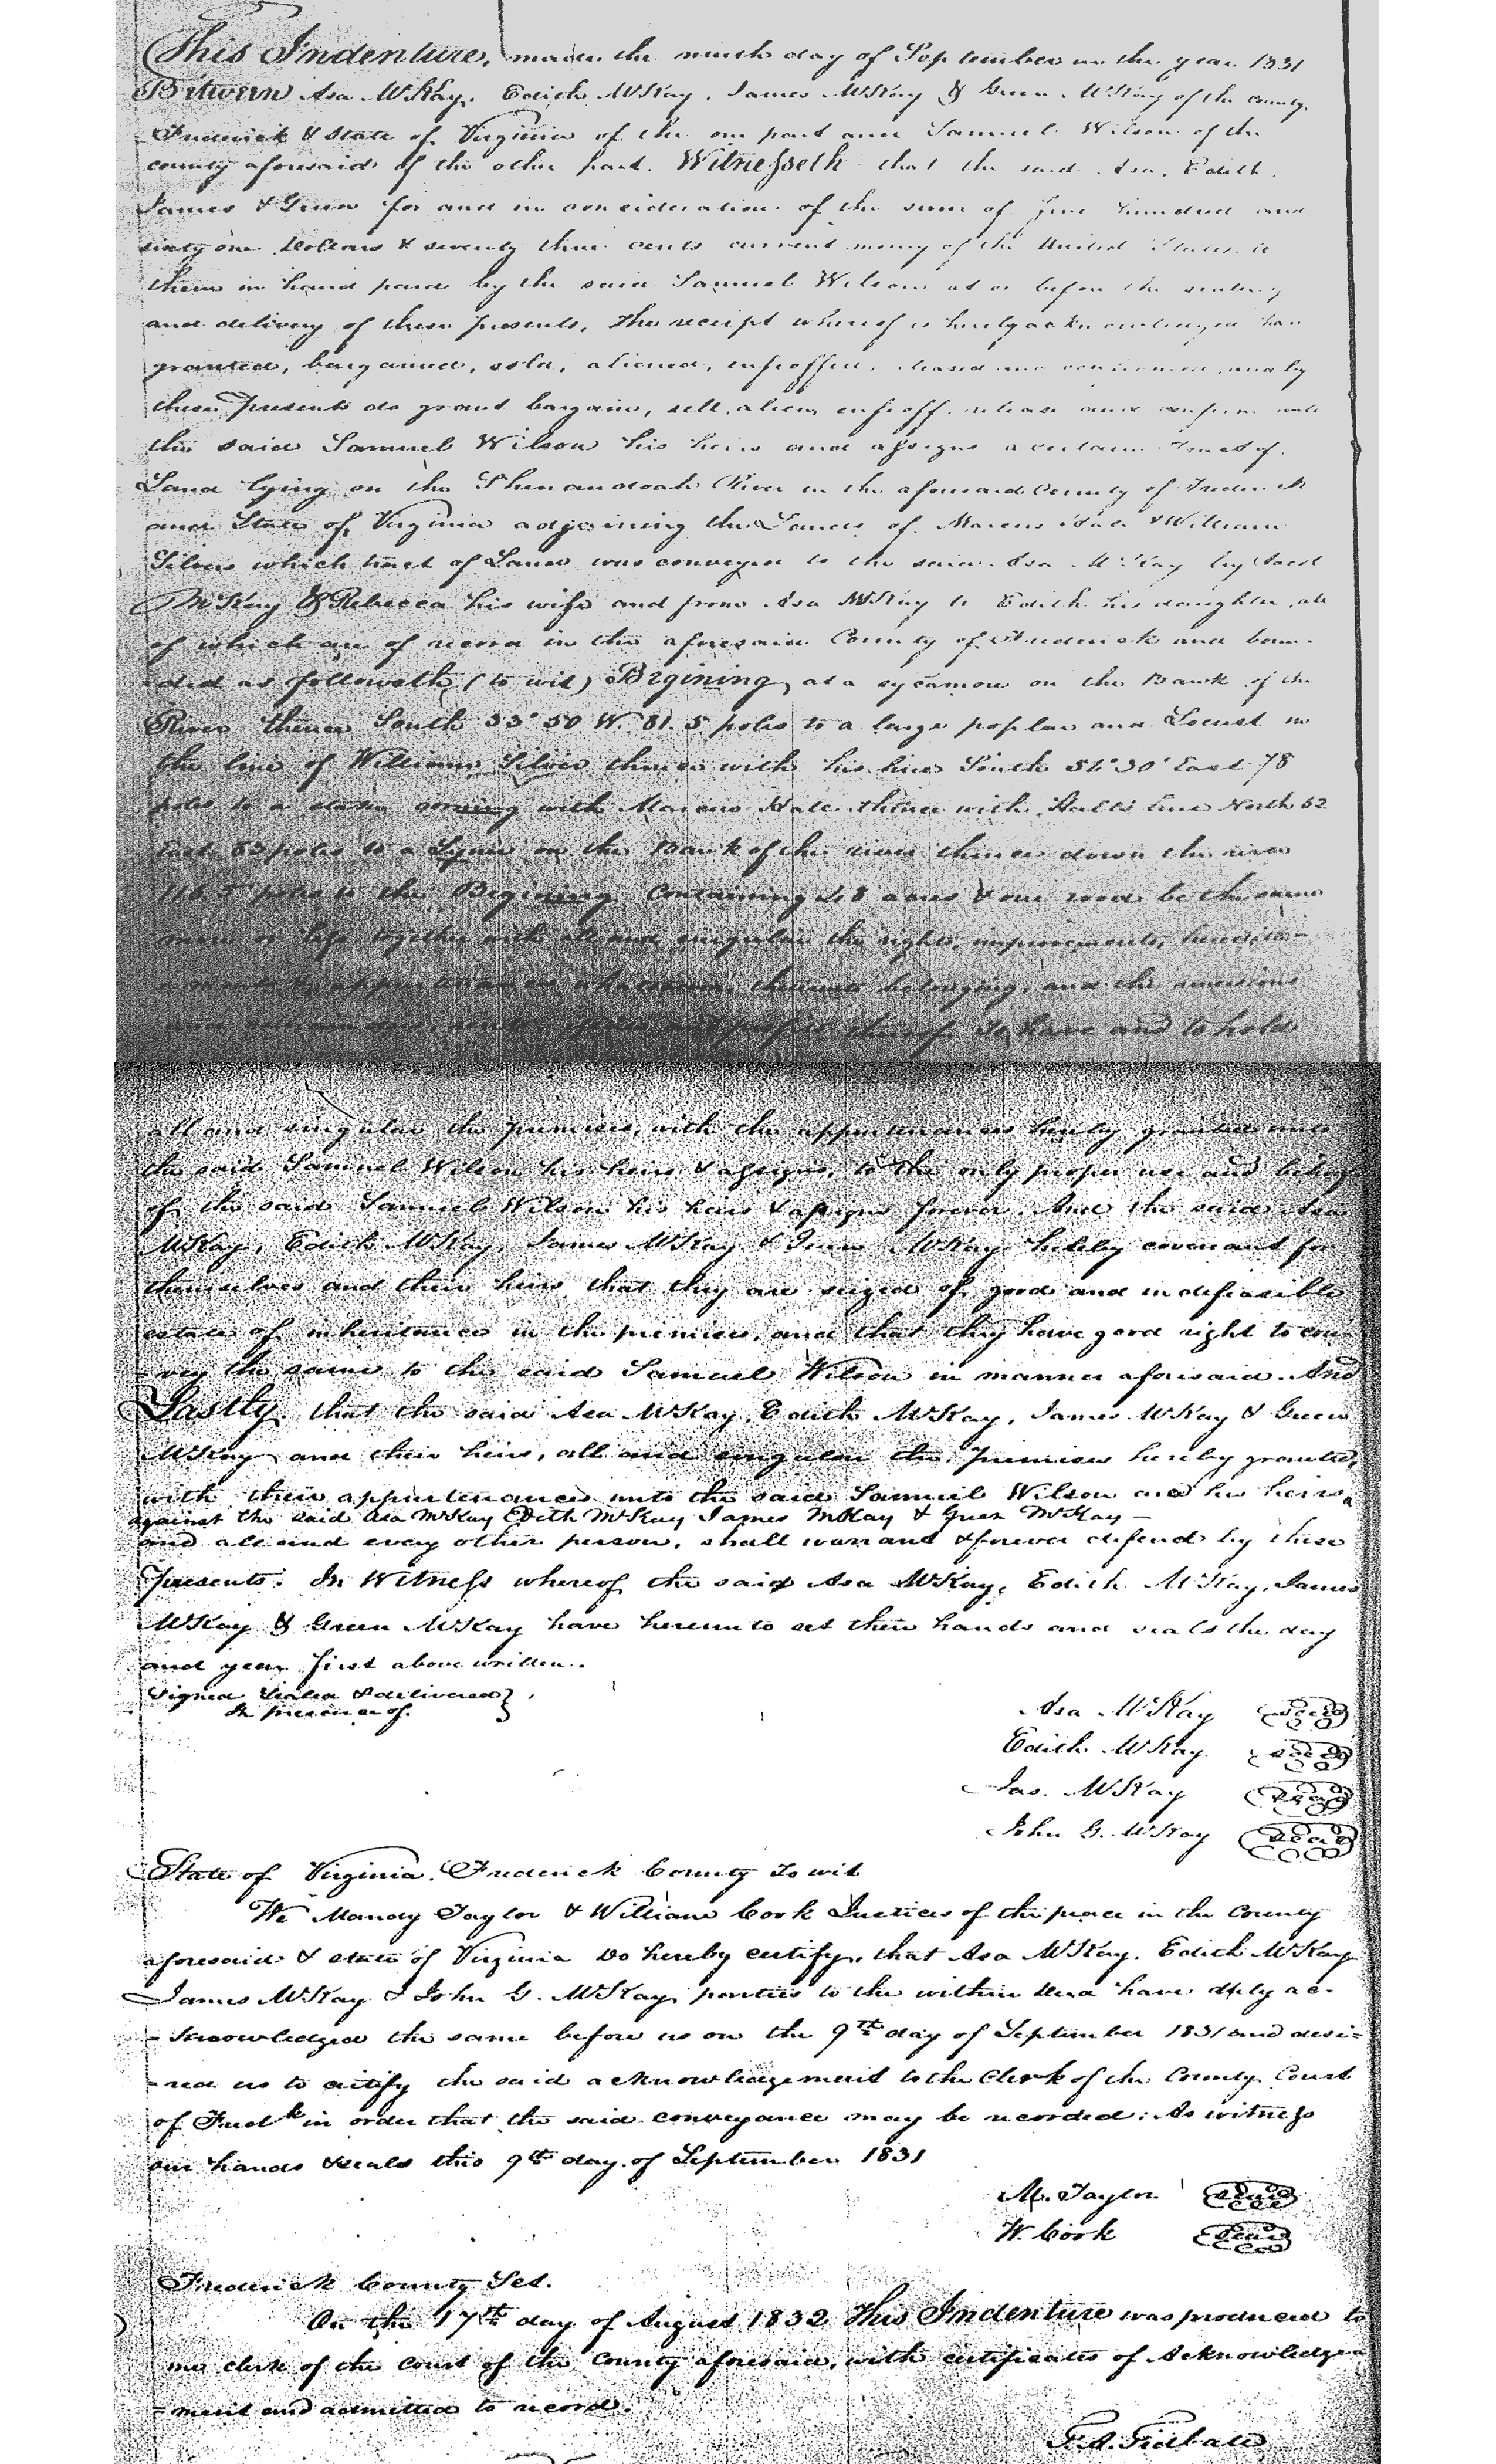 This Indenture, made the ninth day of September in the year 1831
Between Asa McKay, Edith McKay, James McKay & Green McKay of the county
Frederick & State of Virginia of the one part and Samuel Wilson of the
county aforesaid of the other part. Witnesseth that the said Asa, Edith
James & Green for and in consideration of the sum of five hundred and
sixty one Dollars & seventy three cents current money of the United States to
them in hand paid by the said Samuel Wilson at or before the sealing
and delivery of these presents, the receipt whereof is hereby acknowledged have
granted, bargained, sold, aliened, enfeoffed, released and confirmed, and by
these presents do grant bargain, sell, alien, enfeoff, release and confirm unto
the said Samuel Wilson his heirs and assigns a certain Tract of
Land lying on the Shenandoah River in the aforesaid County of Frederick
and State of Virginia adjoining the Lands of Marcus &William
Silvers which tract of Land was conveyed to the said Asa McKay by
McKay & Rebecca his wife and from Asa McKay to Edith his daughter, all
of which are of record in the aforesaid County of Frederick and boun-
-ded as followeth (to wit) Begining at a sycamore on the Bank of the
River thence South 33° 50 W. 81.5 poles to a large poplar and Locust in
the line of William Silvers thence with his line South 54° 30' East 78
poles to a stake corning with Marcus thence with line North 52
East 83 poles to a on the Bank of the river thence down the river
poles to the Begining Containing 48 acres & one rood be the same
more or less together with all and singular the rights, improvements, heredita-
-ments & appurtenances whatsoever, thereunto belonging, and the reversions
and remainders, thereof To have and to hold
all and singular the premises, with the appurtenances hereby granted unto
the said Samuel Wilson his heirs & assigns, to the only proper use and behoof
of the said Samuel Wilson his heirs & assigns forever. And the said Asa
McKay, Edith McKay, James McKay & Green McKay hereby covenant for
themselves and their heirs that they are seized of good and indefeasible
estate of inheritance in the premises, and that they have good right to con-
-vey the same to the said Samuel Wilson in manner aforesaid. And
Lastly that the said Asa McKay, Edith McKay, James McKay & Green
McKay and their heirs, all and singular the Premises hereby granted,
with their appurtenances unto the said Samuel Wilson and his heirs
against the said Asa McKay Edith McKay James McKay & Green McKay —
and all and every other person, shall warrant & forever defend by these
presents. In Witness whereof the said Asa McKay, Edith McKay, James
McKay & Green McKay have hereunto set their hands and seals the day
and year first above written.
Signed Sealed & delivered }
In presence of
Asa McKay Seal
Edith McKay Seal
Jas. McKay Seal
John G. McKay Seal
State of Virginia. Frederick County To wit
We Mandy Taylor & William Cook Justices of the peace in the County
aforesaid & state of Virginia Do hereby certify, that Asa McKay, Edith McKay
James McKay & John G. McKay, parties to the within deed have duly ac-
-knowledged the same before us on the 9th day of September 1831 and desi-
-red us to certify the said acknowledgement to the Clerk of the County Court
of Fredk in order that the said conveyance may be recorded: As witness
our hands & seals this 9th day of September 1831
M. Taylor Seal
W. Cook Seal
Frederick County Sct.
On the 17th day of August 1832 This Indenture was produced to
me clerk of the court of the County aforesaid, with certificates of Acknowledge-
-ment and admitted to record.